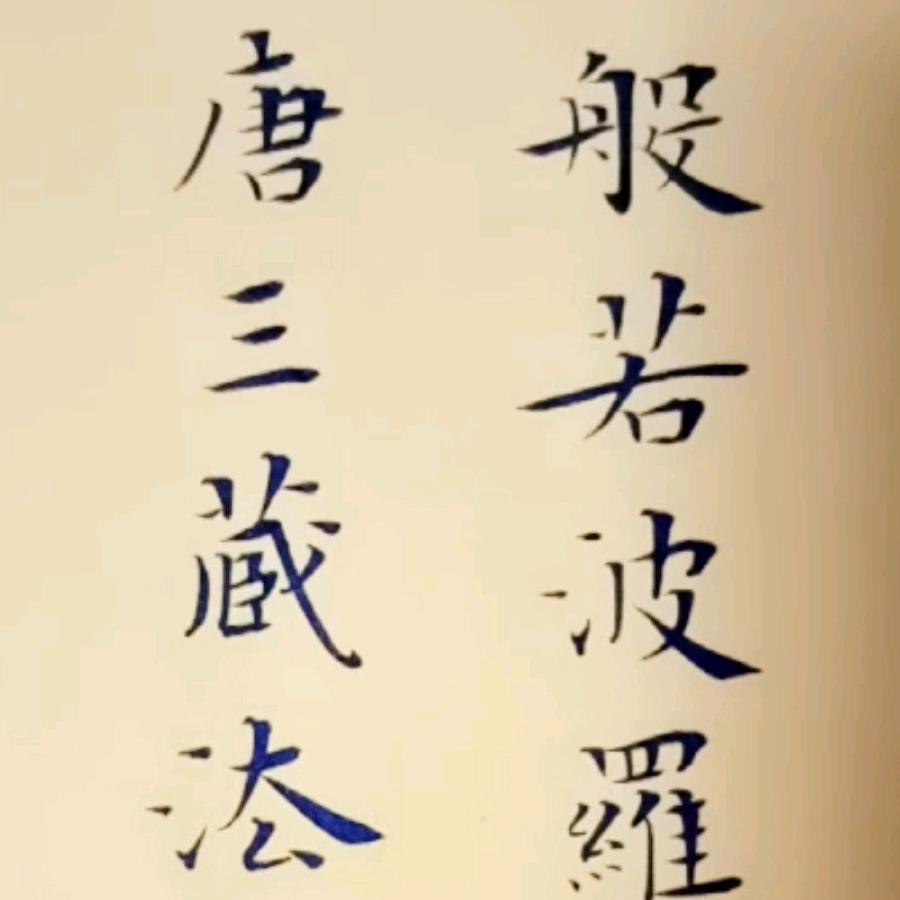 般若波羅
唐三蔵法